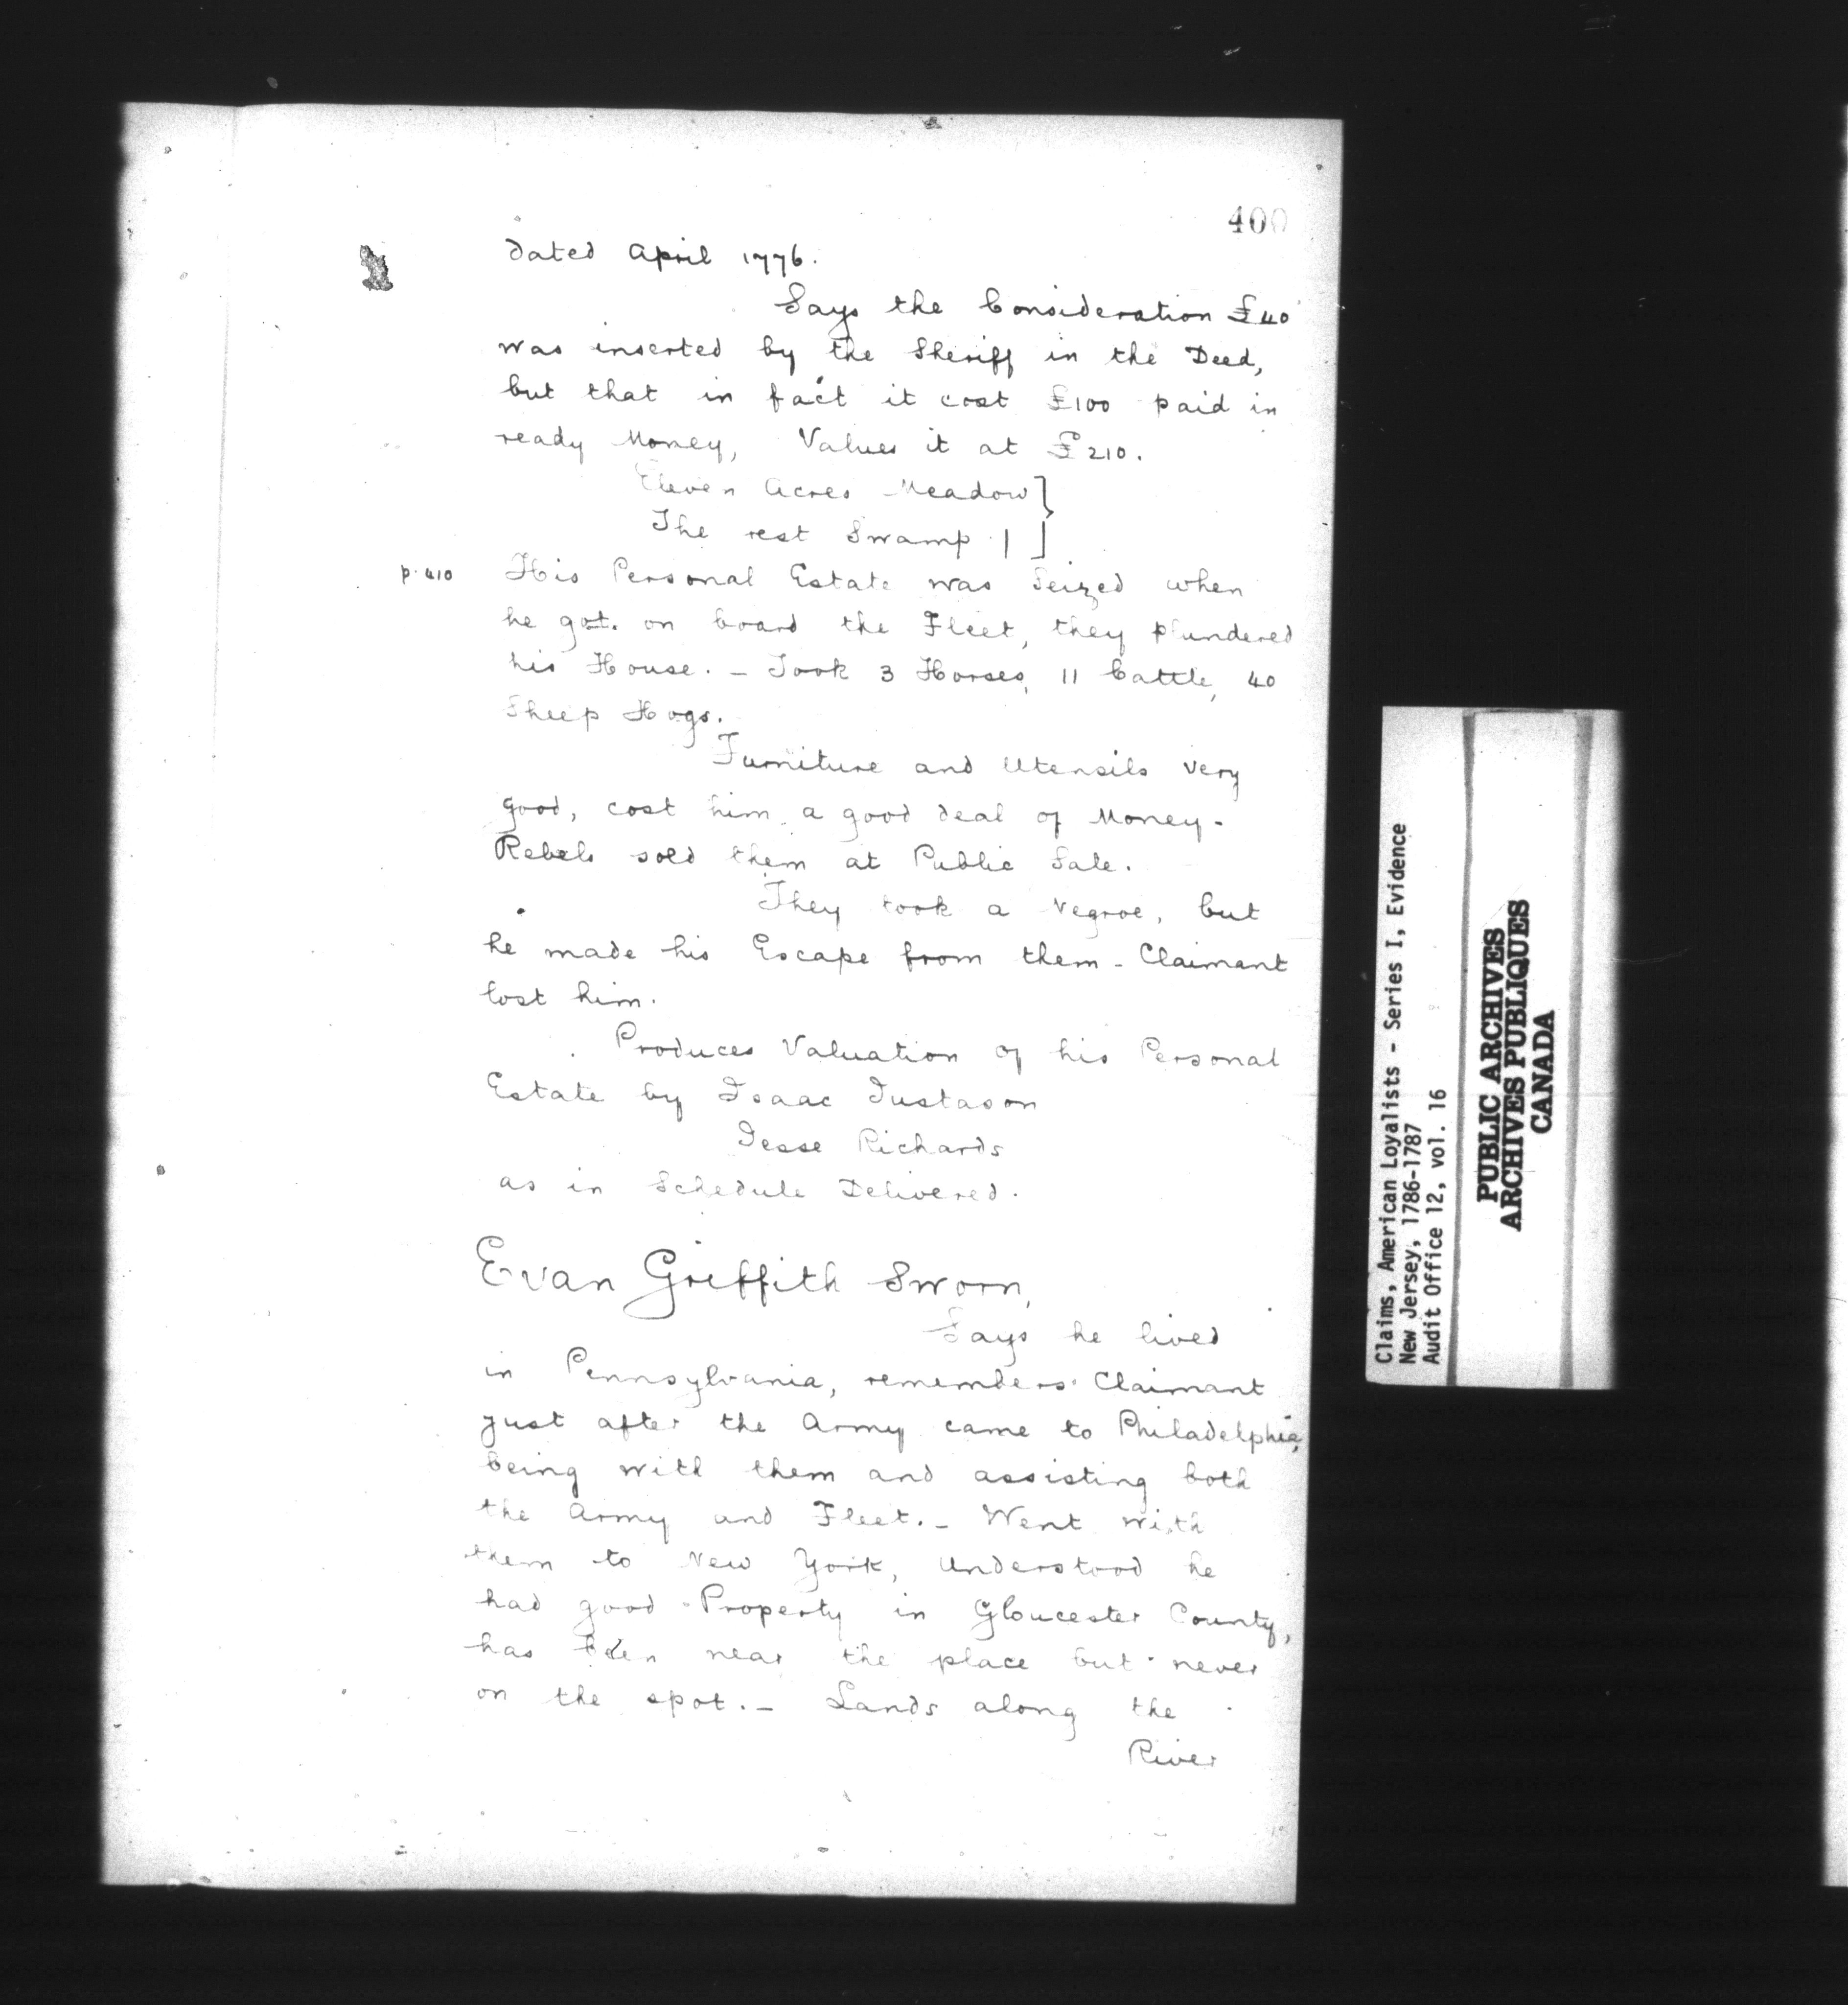 400
dated April 1776.
Says the Consideration £40
was inserted by the Sheriff in the Deed,
but that in fact it cost £100 paid in
ready Money, Values it at £210.
Eleven Acres Meadow
The rest Swamp
p. 410 His Personal Estate was Seized when
he got on board the Fleet, they plundered
his House. - Took 3 Horses, 11 Cattle, 40
Sheep Hogs.
Furniture and Utensils very
good, cost him a good deal of Money -
Rebels sold them at Public Sale.
They took a Negroe, but
he made his Escape from them - Claimant
lost him.
Produces Valuation of his Personal
Estate by Isaac Justason
Jesse Richards
as in Schedule Delivered.
Evan Griffith Sworn,
Says he lived
in Pennsylvania, remembers Claimant
just after the Army came to Philadelphia,
being with them and assisting both
the Army and Fleet. - Went with
them to New York, Understood he
had good Property in Gloucester County,
has been near the place but never
on the spot. - Lands along the
River
Claims, American Loyalists - Series I, Evidence
New Jersey, 1786-1787
Audit Office 12, vol. 16
PUBLIC ARCHIVES
ARCHIVES PUBLIQUES
CANADA